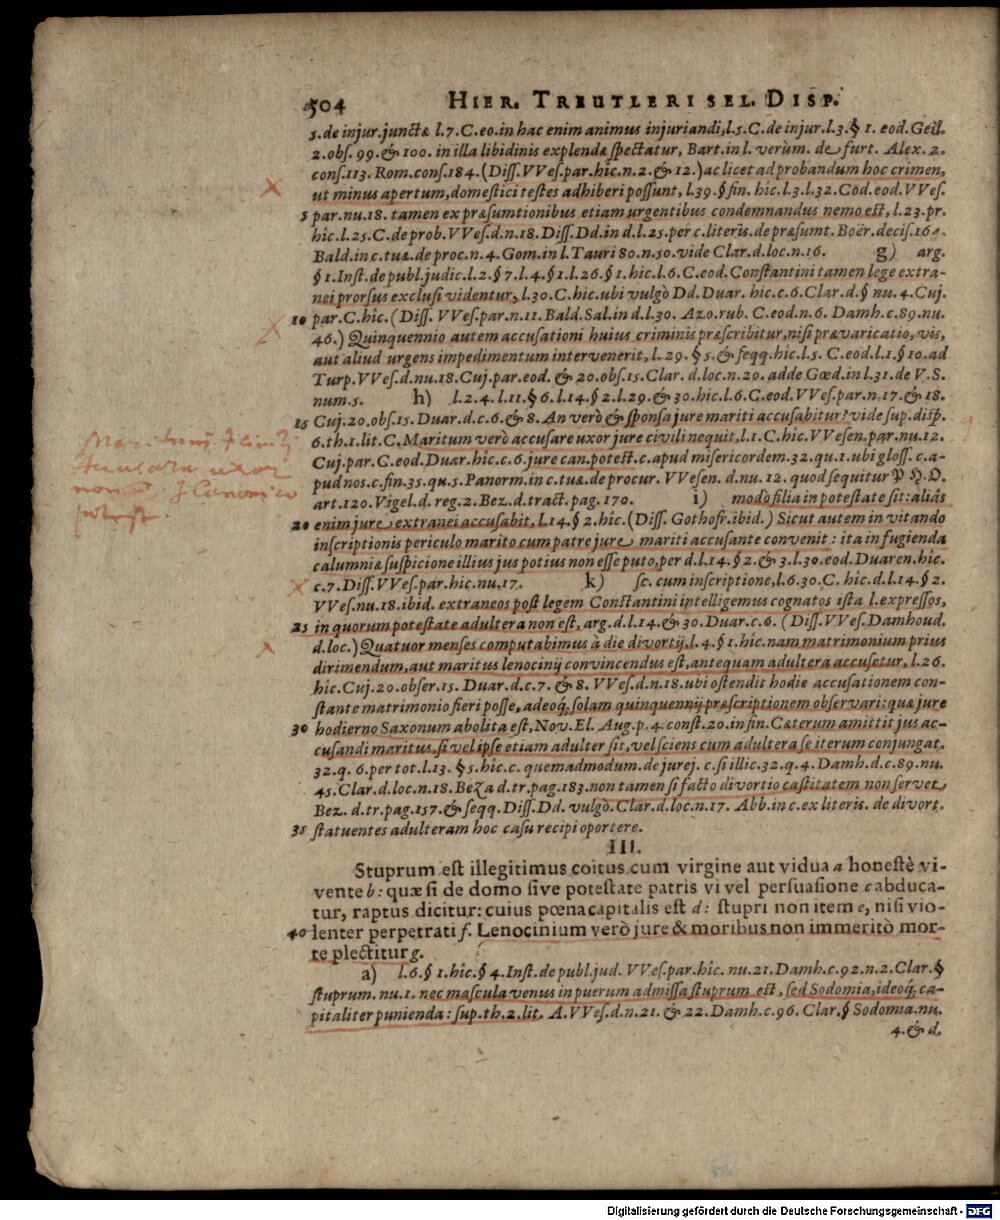 504 HIER. TREUTLERI SEL. DISP.
5. de injur. junctâ l. 7. C. eo. in hac enim animus injuriandi, l. 5. C. de injur. l. 3. § 1. eod. Geil.
2. obs. 99. & 100. in illa libidinis explendæ spectatur, Bart. in l. verùm. de furt. Alex. 2.
cons. 113. Rom. cons. 184. (Diss. VVes. par. hîc. n. 2. & 12.) ac licet ad probandum hoc crimen,
ut minus apertum, domestici testes adhiberi possunt, l. 39. § fin. hîc. l. 3. l. 32. Cod. eod. VVes.
5 par. nu. 18. tamen ex præsumtionibus etiam urgentibus condemnandus nemo est, l. 23. pr.
hîc. l. 25. C. de prob. VVes. d. n. 18. Diss. Dd. in d. l. 25. per c. literis. de præsumt. Boër. decis. 164.
Bald. in c. tuæ. de proc. n. 4. Gom. in l. Tauri 80. n. 50. vide Clar. d. loc. n. 16. g) arg.
§ 1. Inst. de publ. judic. l. 2. § 7. l. 4. § 1. l. 26. § 1. hic. l. 6. C. eod. Constantini tamen lege extra-
nei prorsus exclusi videntur, l. 30. C. hic. ubi vulgò Dd. Duar. hic. c. 6. Clar. d. § nu. 4. Cuj.
10 par. C. hîc. (Diss. VVes. par. n. 11. Bald. Sal. in d. l. 30. Azo. rub. C. eod. n. 6. Damh. c. 89. nu.
46.) Quinquennio autem accusationi huius criminis præscribitur, nisi prævaricatio, vis,
aut aliud urgens impedimentum intervenerit, l. 29. § 5. & seqq. hîc. l. 5. C. eod. l. 1. § 10. ad
Turp. VVes. d. nu. 18. Cuj. par. eod. & 20. obs. 15. Clar. d. loc. n. 20. adde Gœd. in l. 31. de V. S.
num. 5. h) l. 2. 4. l. 11. § 6. l. 14. § 2. l. 29. & 30. hîc. l. 6. C. eod. VVes. par. n. 17. & 18.
15 Cuj. 20. obs. 15. Duar. d. c. 6. & 8. An verò & sponsa jure mariti accusabitur? vide sup. disp.
6. th. 1. lit. C. Maritum verò accusare uxor jure civili nequit, l. 1. C. hic. VVesen. par. nu. 12.
Cuj. par. C. eod. Duar. hîc. c. 6. jure can. potest. c. apud misericordem. 32. qu. 1. ubi gloss. c. a-
pud nos. c. fin. 35. qu. 5. Panorm. in c. tuæ. de procur. VVesen. d. nu. 12. quod sequitur P. H. O.
art. 120. Vigel. d. reg. 2. Bez. d. tract. pag. 170. i) modò filia in potestate sit: aliâs
20 enim jure extranei accusabit, l. 14. § 2. hîc. (Diss. Gothofr. ibid.) Sicut autem in vitando
inscriptionis periculo marito cum patre jure mariti accusante convenit: ita in fugienda
calumniæ suspicione illius jus potius non esse puto, per d. l. 14. § 2. & 3. l. 30. eod. Duaren. hîc.
c. 7. Diss. VVes. par. hic. nu. 17. k) sc. cum inscriptione, l. 6. 30. C. hic. d. l. 14. § 2.
VVes. nu. 18. ibid. extraneos post legem Constantini intelligemus cognatos ista l. expressos,
25 in quorum potestate adultera non est, arg. d. l. 14. & 30. Duar. c. 6. (Diss. VVes. Damhoud.
d. loc.) Quatuor menses computabimus à die divortij, l. 4. § 1. hîc. nam matrimonium prius
dirimendum, aut maritus lenocinij convincendus est, antequam adultera accusetur, l. 26.
hîc. Cuj. 20. obser. 15. Duar. d. c. 7. & 8. VVes. d. n. 18. ubi ostendit hodie accusationem con-
stante matrimonio fieri posse, adeoq́, solam quinquennij præscriptionem observari: quæ jure
30 hodierno Saxonum abolita est, Nov. El. Aug. p. 4. const. 20. in fin. Cæterum amittit jus ac-
cusandi maritus, si vel ipse etiam adulter sit, vel sciens cum adultera se iterum conjungat.
32. q. 6. per tot. l. 13. § 5. hîc. c. quemadmodum. de jurej. c. si illic. 32. q. 4. Damh. d. c. 89. nu.
45. Clar. d. loc. n. 18. Beza d. tr. pag. 183. non tamen si facto divortio castitatem non servet
Bez. d. tr. pag. 157. & seqq. Diss. Dd. vulgò. Clar. d. loc. n. 17. Abb. in c. ex literis. de divort.
35 statuentes adulteram hoc casu recipi oportere.
III.
Stuprum est illegitimus coitus cum virgine aut vidua a honestè vi-
vente b: quæ si de domo sive potestate patris vi vel persuasione c abduca-
tur, raptus dicitur: cuius pœna capitalis est d: stupri non item e, nisi vio-
40 lenter perpetrati f. Lenocinium verò jure & moribus non immeritò mor-
te plectitur g.
a) l. 6. § 1. hîc. § 4. Inst. de publ. jud. VVes. par. hîc. nu. 21. Damh. c. 92. n. 2. Clar. §
stuprum. nu. 1. nec mascula venus in puerum admissa stuprum est, sed Sodomia, ideoq́, ca-
pitaliter punienda: sup. th. 2. lit. A. VVes. d. n. 21. & 22. Damh. c. 96. Clar. § Sodomia. nu.
4. & d.
Maritum
accusare uxor
non
potest.
Digitalisierung gefördert durch die Deutsche Forschungsgemeinschaft - DFG